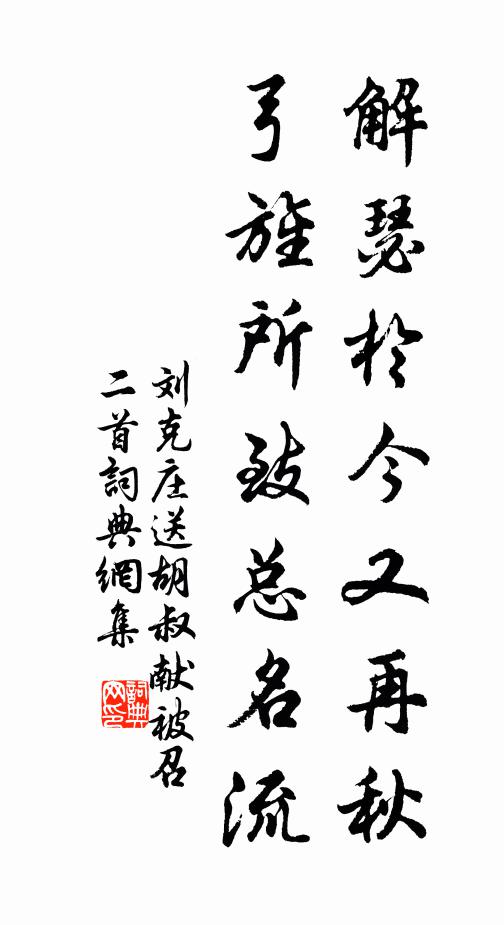 解瑟於今又再秋
弓旌所致总名流
刘克庄送胡叔献被召
二首词典網集
詞典
网印